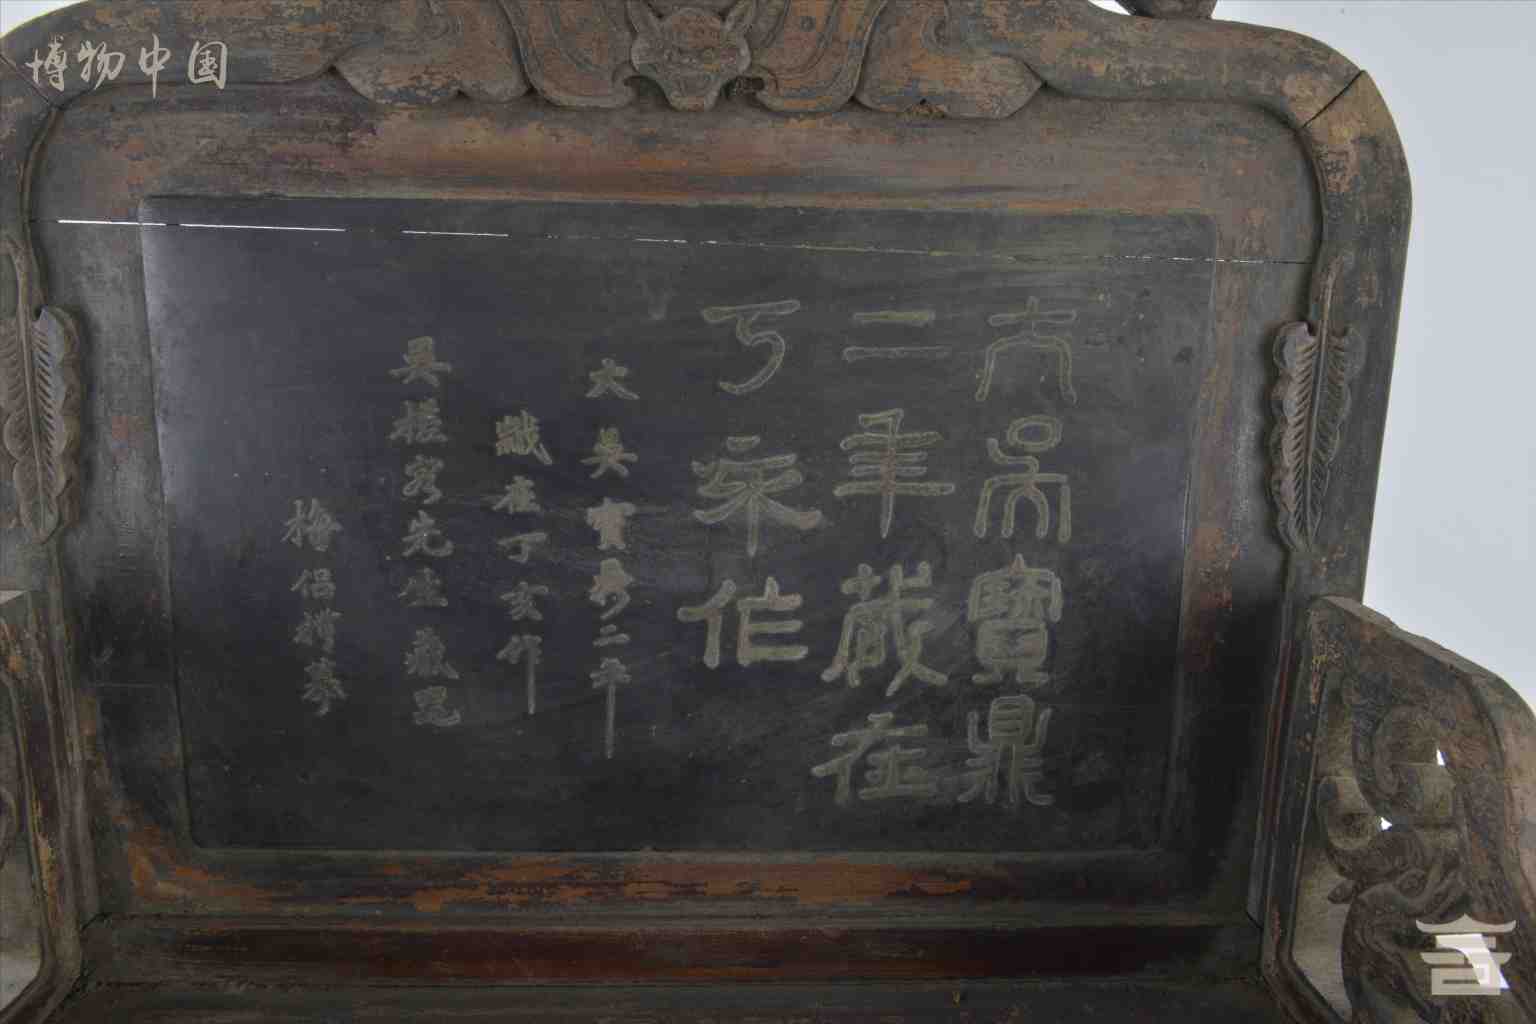 博物中国
大吴寶鼎
二年歲在
丁亥作
大吴寶鼎二年
歲在丁亥作
吴槎客先生藏
梅侣摹